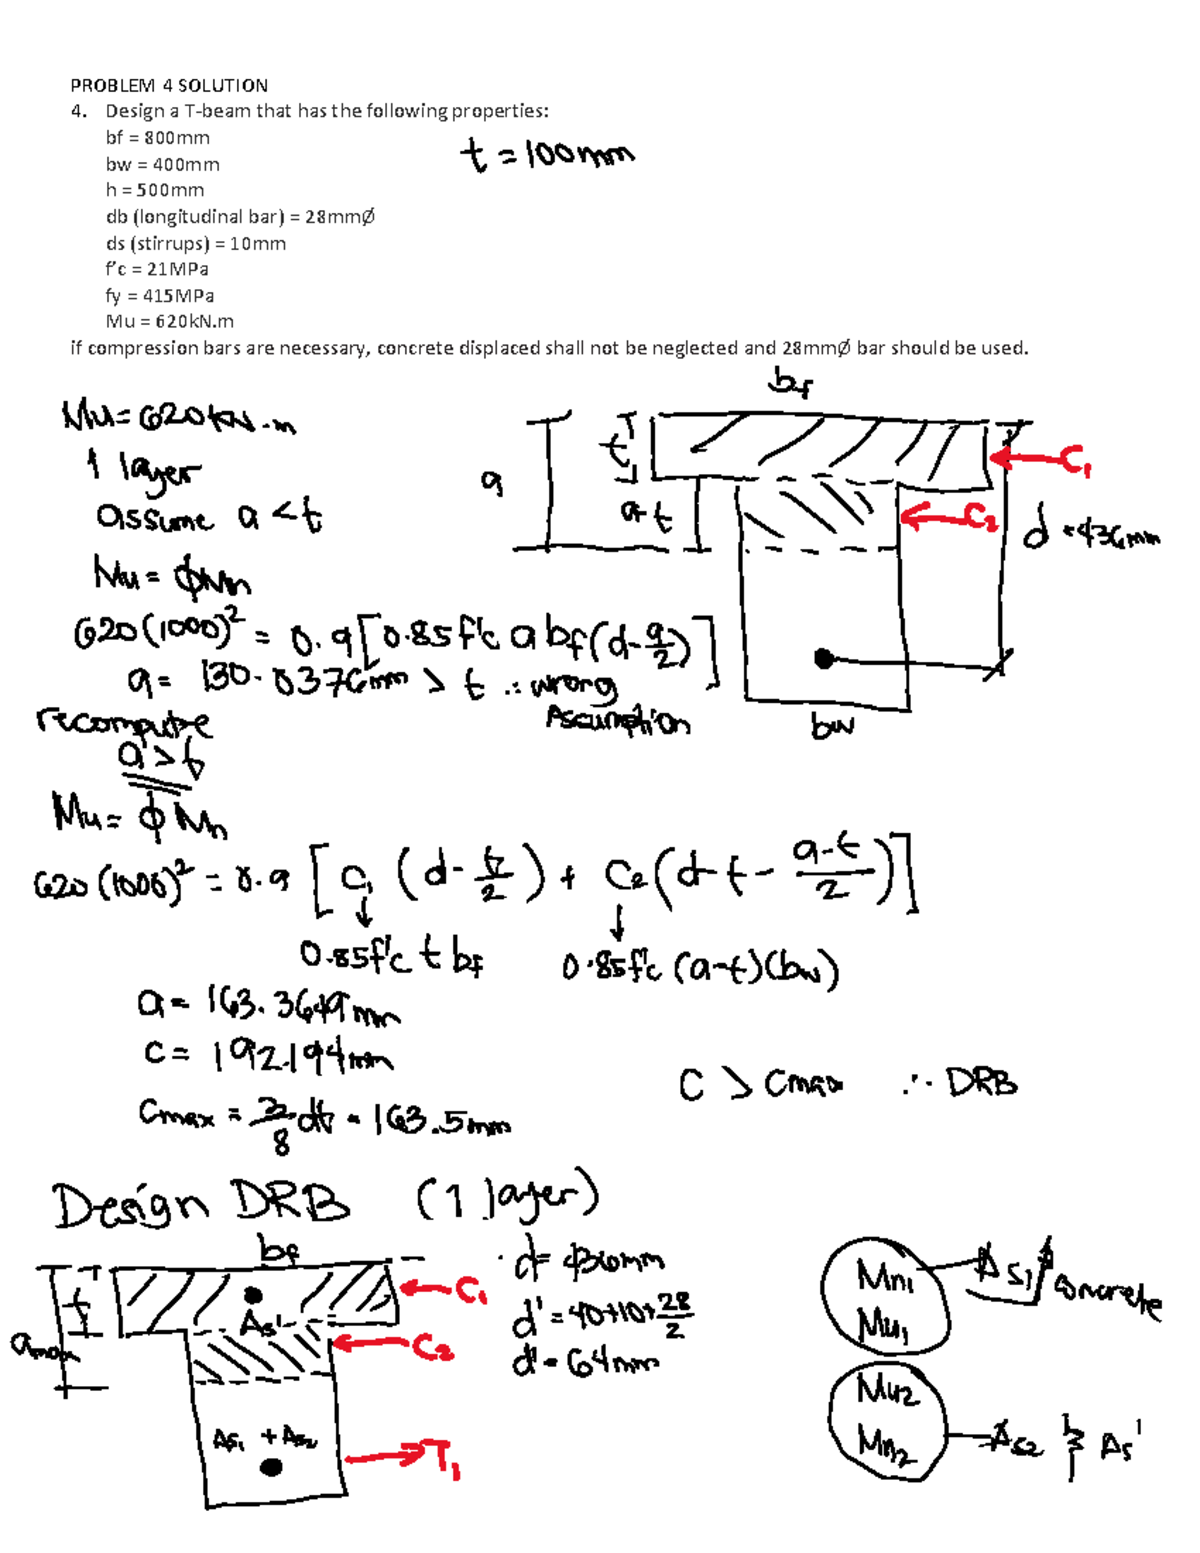 PROBLEM 4 SOLUTION
4. Design a T-beam that has the following properties:
bf = 800mm
t = 100mm
bw = 400mm
h = 500mm
db (longitudinal bar) = 28mmØ
ds (stirrups) = 10mm
f'c = 21MPa
fy = 415MPa
Mu = 620kN.m
if compression bars are necessary, concrete displaced shall not be neglected and 28mmØ bar should be used.
Mu = 620kN-m
1 layer
assume a < t
Mu = ϕMn
620(1000)² = 0.9[0.85f'c a bf(d-a/2)]
a = 130.8376mm > t ∴ wrong
Assumption
recompute
a > t
bf
t
a
a-t
C1
C2
d = 436mm
bw
Mu = ϕMn
620(1000)² = 0.9[C1(d-t/2) + C2(d-t-(a-t)/2)]
0.85f'c t bf
0.85f'c (a-t)(bw)
a = 163.3649mm
c = 192.194mm
C > Cmax ∴ DRB
Cmax = 3/8 dt = 163.5mm
Design DRB (1 layer)
bf
t
amax
As'
C1
C2
As1 + As2
T1
d = 436mm
d' = 40+10+28/2
d' = 64mm
Mn1
Mu1
As1
concrete
Mu2
Mn2
As2 & As'